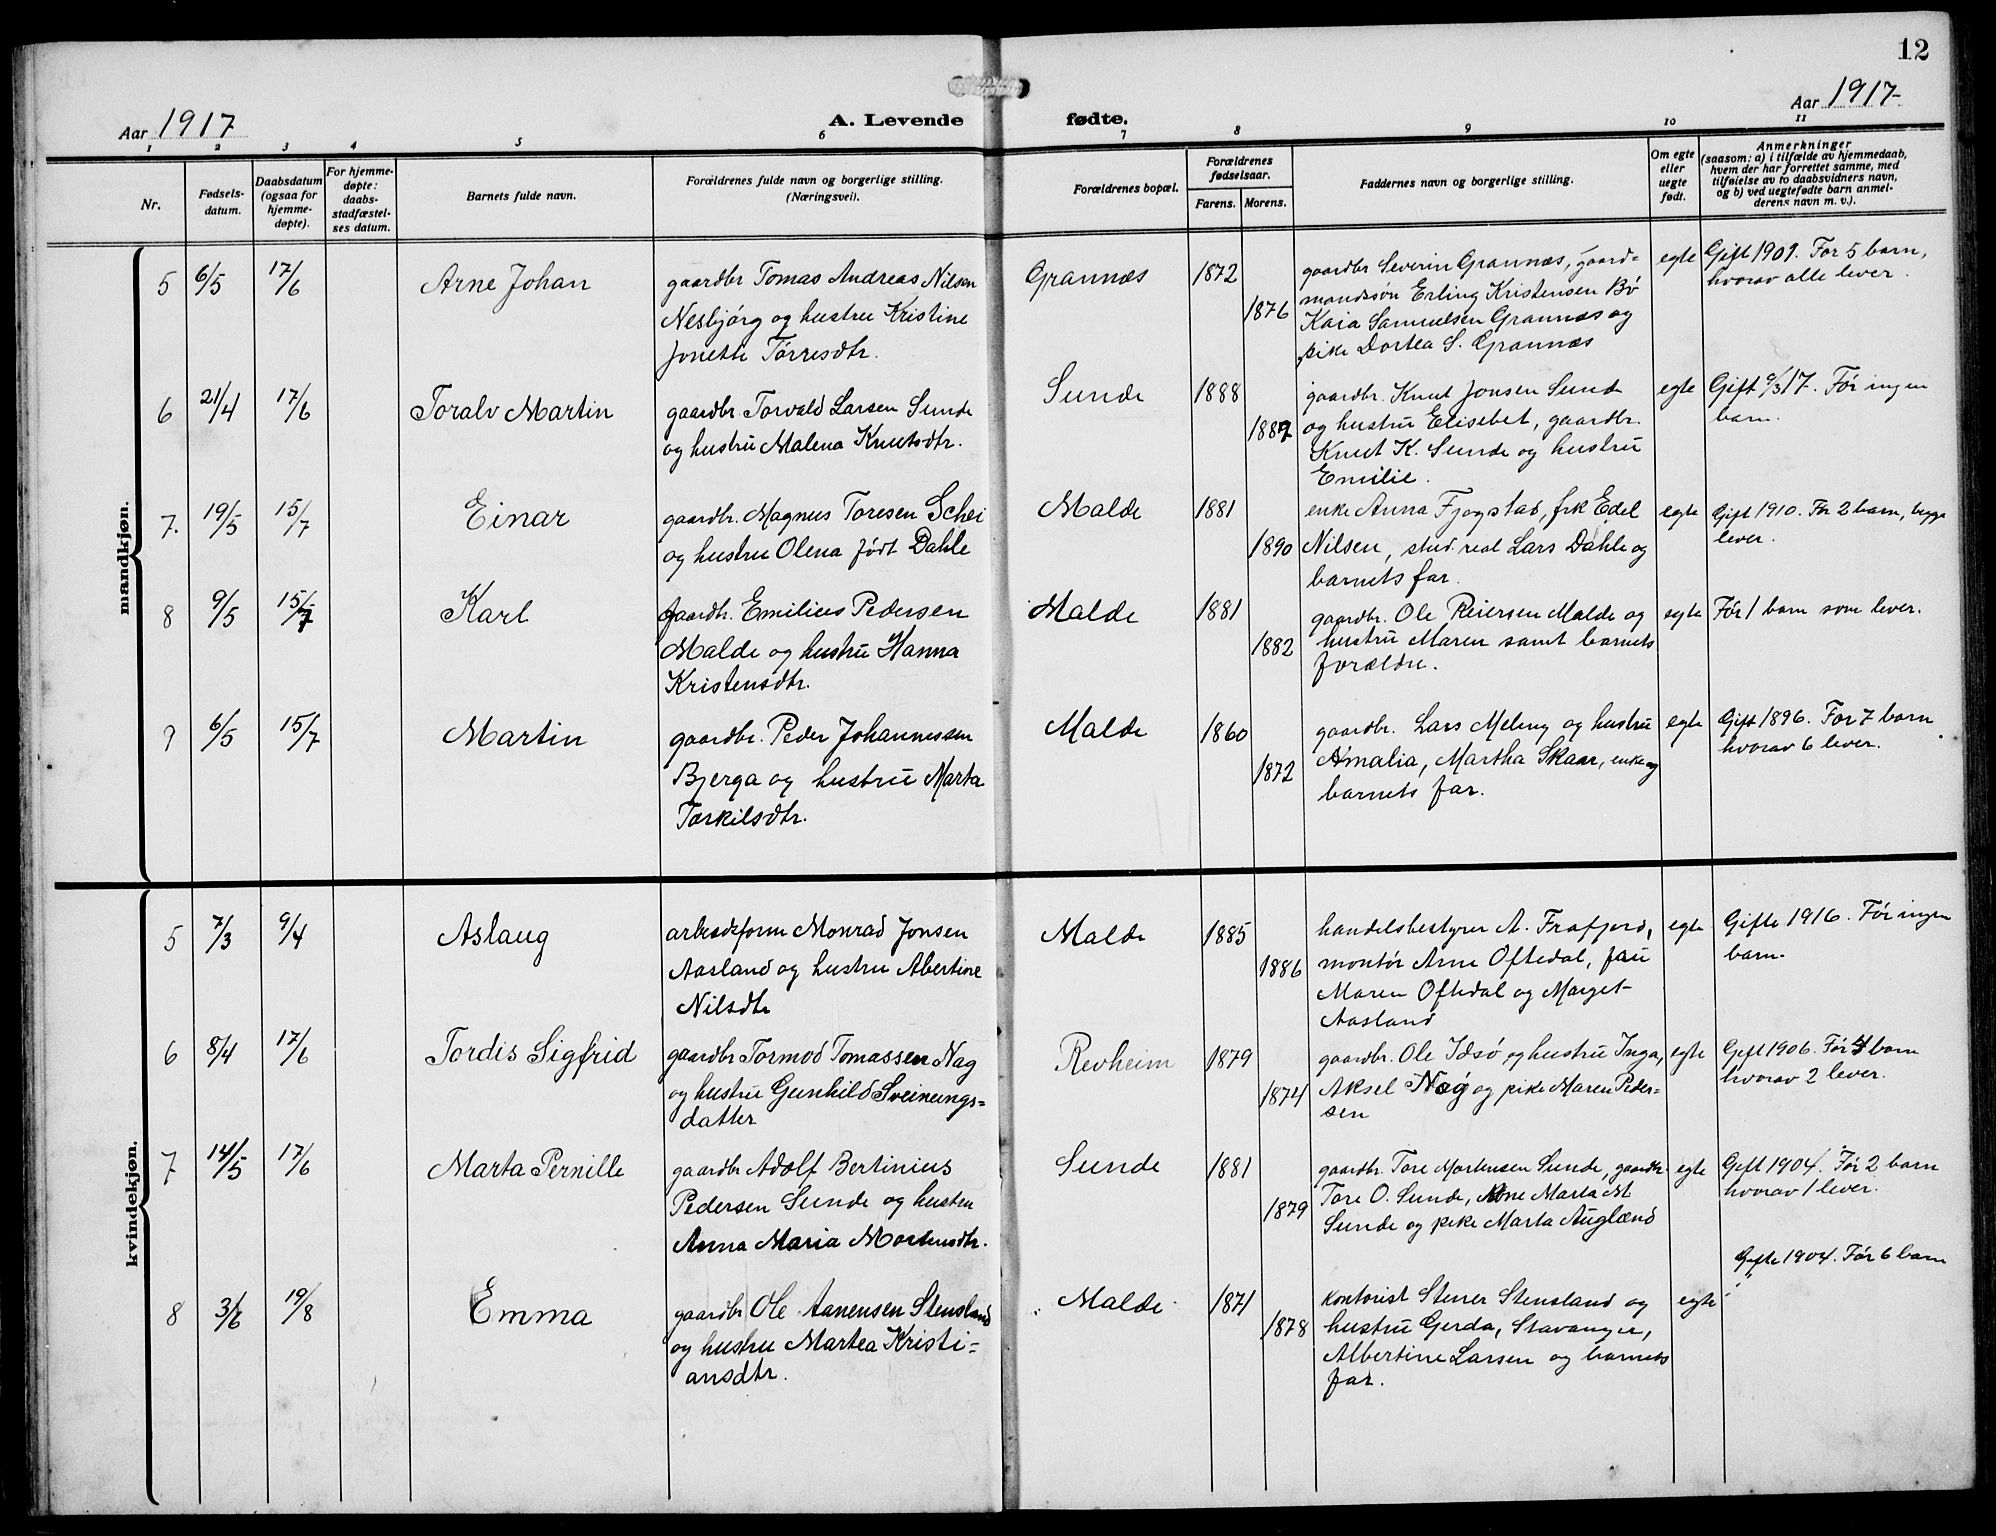 12
Aar 1917
A. Levende fødte.
Aar 1917.
1 2 3 4 5 6 7 8 9 10 11
Nr.
Fødsels-
datum.
Daabsdatum
(ogsaa for
hjemme-
døpte).
For hjemme-
døpte:
daabs-
stadfæstel-
ses datum.
Barnets fulde navn.
Forældrenes fulde navn og borgerlige stilling.
(Næringsvei).
Forældrenes bopæl.
Forældrenes
fødselsaar.
Farens. Morens.
Faddernes navn og borgerlige stilling.
Om egte
eller
uegte
født.
Anmerkninger
(saasom: a) i tilfælde av hjemmedaab,
hvem der har forrettet samme, med
tilføielse av to daabsvidners navn,
og b) ved uegtefødte barn anmel-
derens navn m. v.).
mandkjøn.
5 6/5 17/6 Arne Johan
gaardbr Tomas Andreas Nilsen
Nesbjørg og hustru Kristine
Jonette Tørresdtr.
Grannæs 1872
1876
gaardbr Severin Grannæs, gaard-
mandssøn Erling Kristensen Bø
Kaia Samuelsen Grannæs og
pike Dortea S. Grannæs
egte
Gift 1901. Før 5 barn,
hvorav alle lever.
6 21/4 17/6 Toralv Martin
gaardbr. Torvald Larsen Sunde
og hustru Malena Knutsdtr.
Sunde 1888
1887
gaardbr. Knut Jonsen Sunde
og hustru Elisebet, gaardbr.
Knut K. Sunde og hustru
Emilie.
egte
Gift /3 17. Før ingen
barn.
7. 19/5 15/7 Einar
gaardbr. Magnus Toresen Schei
og hustru Olena født Dahle
Malde 1881
1890
enke Anna Fjogstad, frk Edel
Nilsen, stud. real Lars Dahle og
barnets far.
egte
Gift 1910. Før 2 barn, begge
lever.
8 9/5 15/7 Karl
gaardbr. Emilius Pedersen
Malde og hustru Hanna
Kristensdtr.
Malde 1881
1882
gaardbr. Ole Reiersen Malde og
hustru Maren samt barnets
forældre.
egte
Før 1 barn som lever.
9 6/5 15/7 Martin
gaardbr. Peder Johannessen
Bjerga og hustru Marta
Torkilsdtr.
Malde 1860
1872
gaardbr. Lars Meling og hustru
Amalia, Martha Skaar, enke og
barnets far.
egte
Gift 1896. Før 7 barn
hvorav 6 lever.
kvindekjøn.
5 7/3 9/4 Aslaug
arbeidsform Monrad Jonsen
Aasland og hustru Abertine
Nilsdtr
Malde 1885
1886
handelsbestyrer A. Frafjord,
montør Arne Oftedal, fru
Maren Oftedal og Marget
Aasland
egte
Gifte 1916. Før ingen
barn.
6 8/4 17/6 Tordis Sigfrid
gaardbr Tormod Tomassen Nag
og hustru Gunhild Sveinungs=
datter
Revheim 1879
1874
gaardbr. Ole Idsø og hustru Inga,
Aksel Nag og pike Maren Peder-
sen
egte
Gift 1906. Før 4 barn
hvorav 2 lever.
7 14/5 17/6 Marta Pernille
gaardbr Adolf Bertinius
Pedersen Sunde og hustru
Anna Maria Mortensdtr.
Sunde 1881
1879
gaardbr. Tore Mortensen Sunde, gaardbr
Tore O. Sunde, Ane Marta M
Sunde og pike Marta Auglænd
egte
Gift 1904. Før 2 barn
hvorav 1 lever.
8 3/6 19/8 Emma
gaardbr Ole Aanensen Stensland
og hustru Martea Kristi=
ansdtr.
Malde 1871
1878
kontorist Stener Stensland og
hustru Gerda, Stavanger,
Albertine Larsen og barnets
far.
egte
Gifte 1904. Før 6 barn